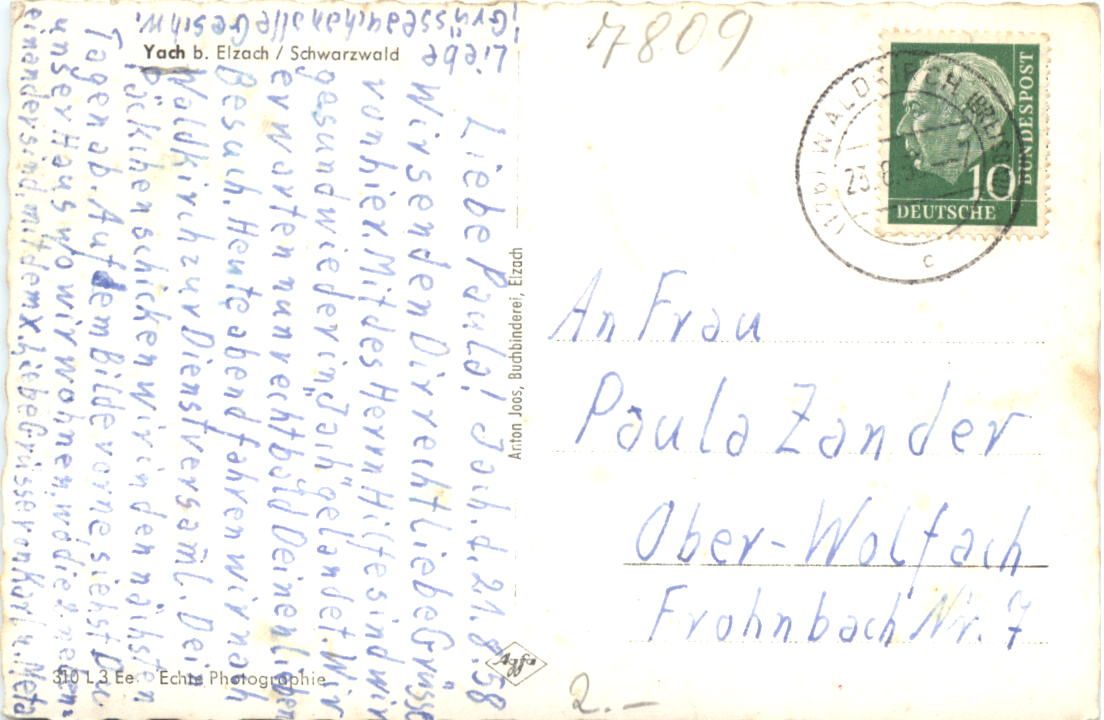 Yach b. Elzach / Schwarzwald
Jach. d. 21.8.58
Liebe Paula!
Wir senden Dir recht liebe Grüsse
von hier. Mit des Herrn Hilfe sind wir
gesund wieder in "Jach" gelandet. Wir
erwarten nun recht bald Deinen lieben
Besuch. Heute abend fahren wir nach
Waldkirch zur Dienstversaml. Dein
Päckchen schicken wir in den nächsten
Tagen ab. Auf dem Bilde vorne siehst Du
unser Haus wo wir wohnen, wo die
einander sind, mit dem x. Liebe Grüsse von Karl u. Meta
Liebe
Grüsse auch an alle Geschw.
310 L 3 Ee. Echte Photographie
Anton Joos, Buchbinderei, Elzach
Agfa
7809
DEUTSCHE
BUNDESPOST
10
WALDKIRCH (BREISG)
c
An Frau
Paula Zander
Ober-Wolfach
Frohnbach Nr. 7
2.—